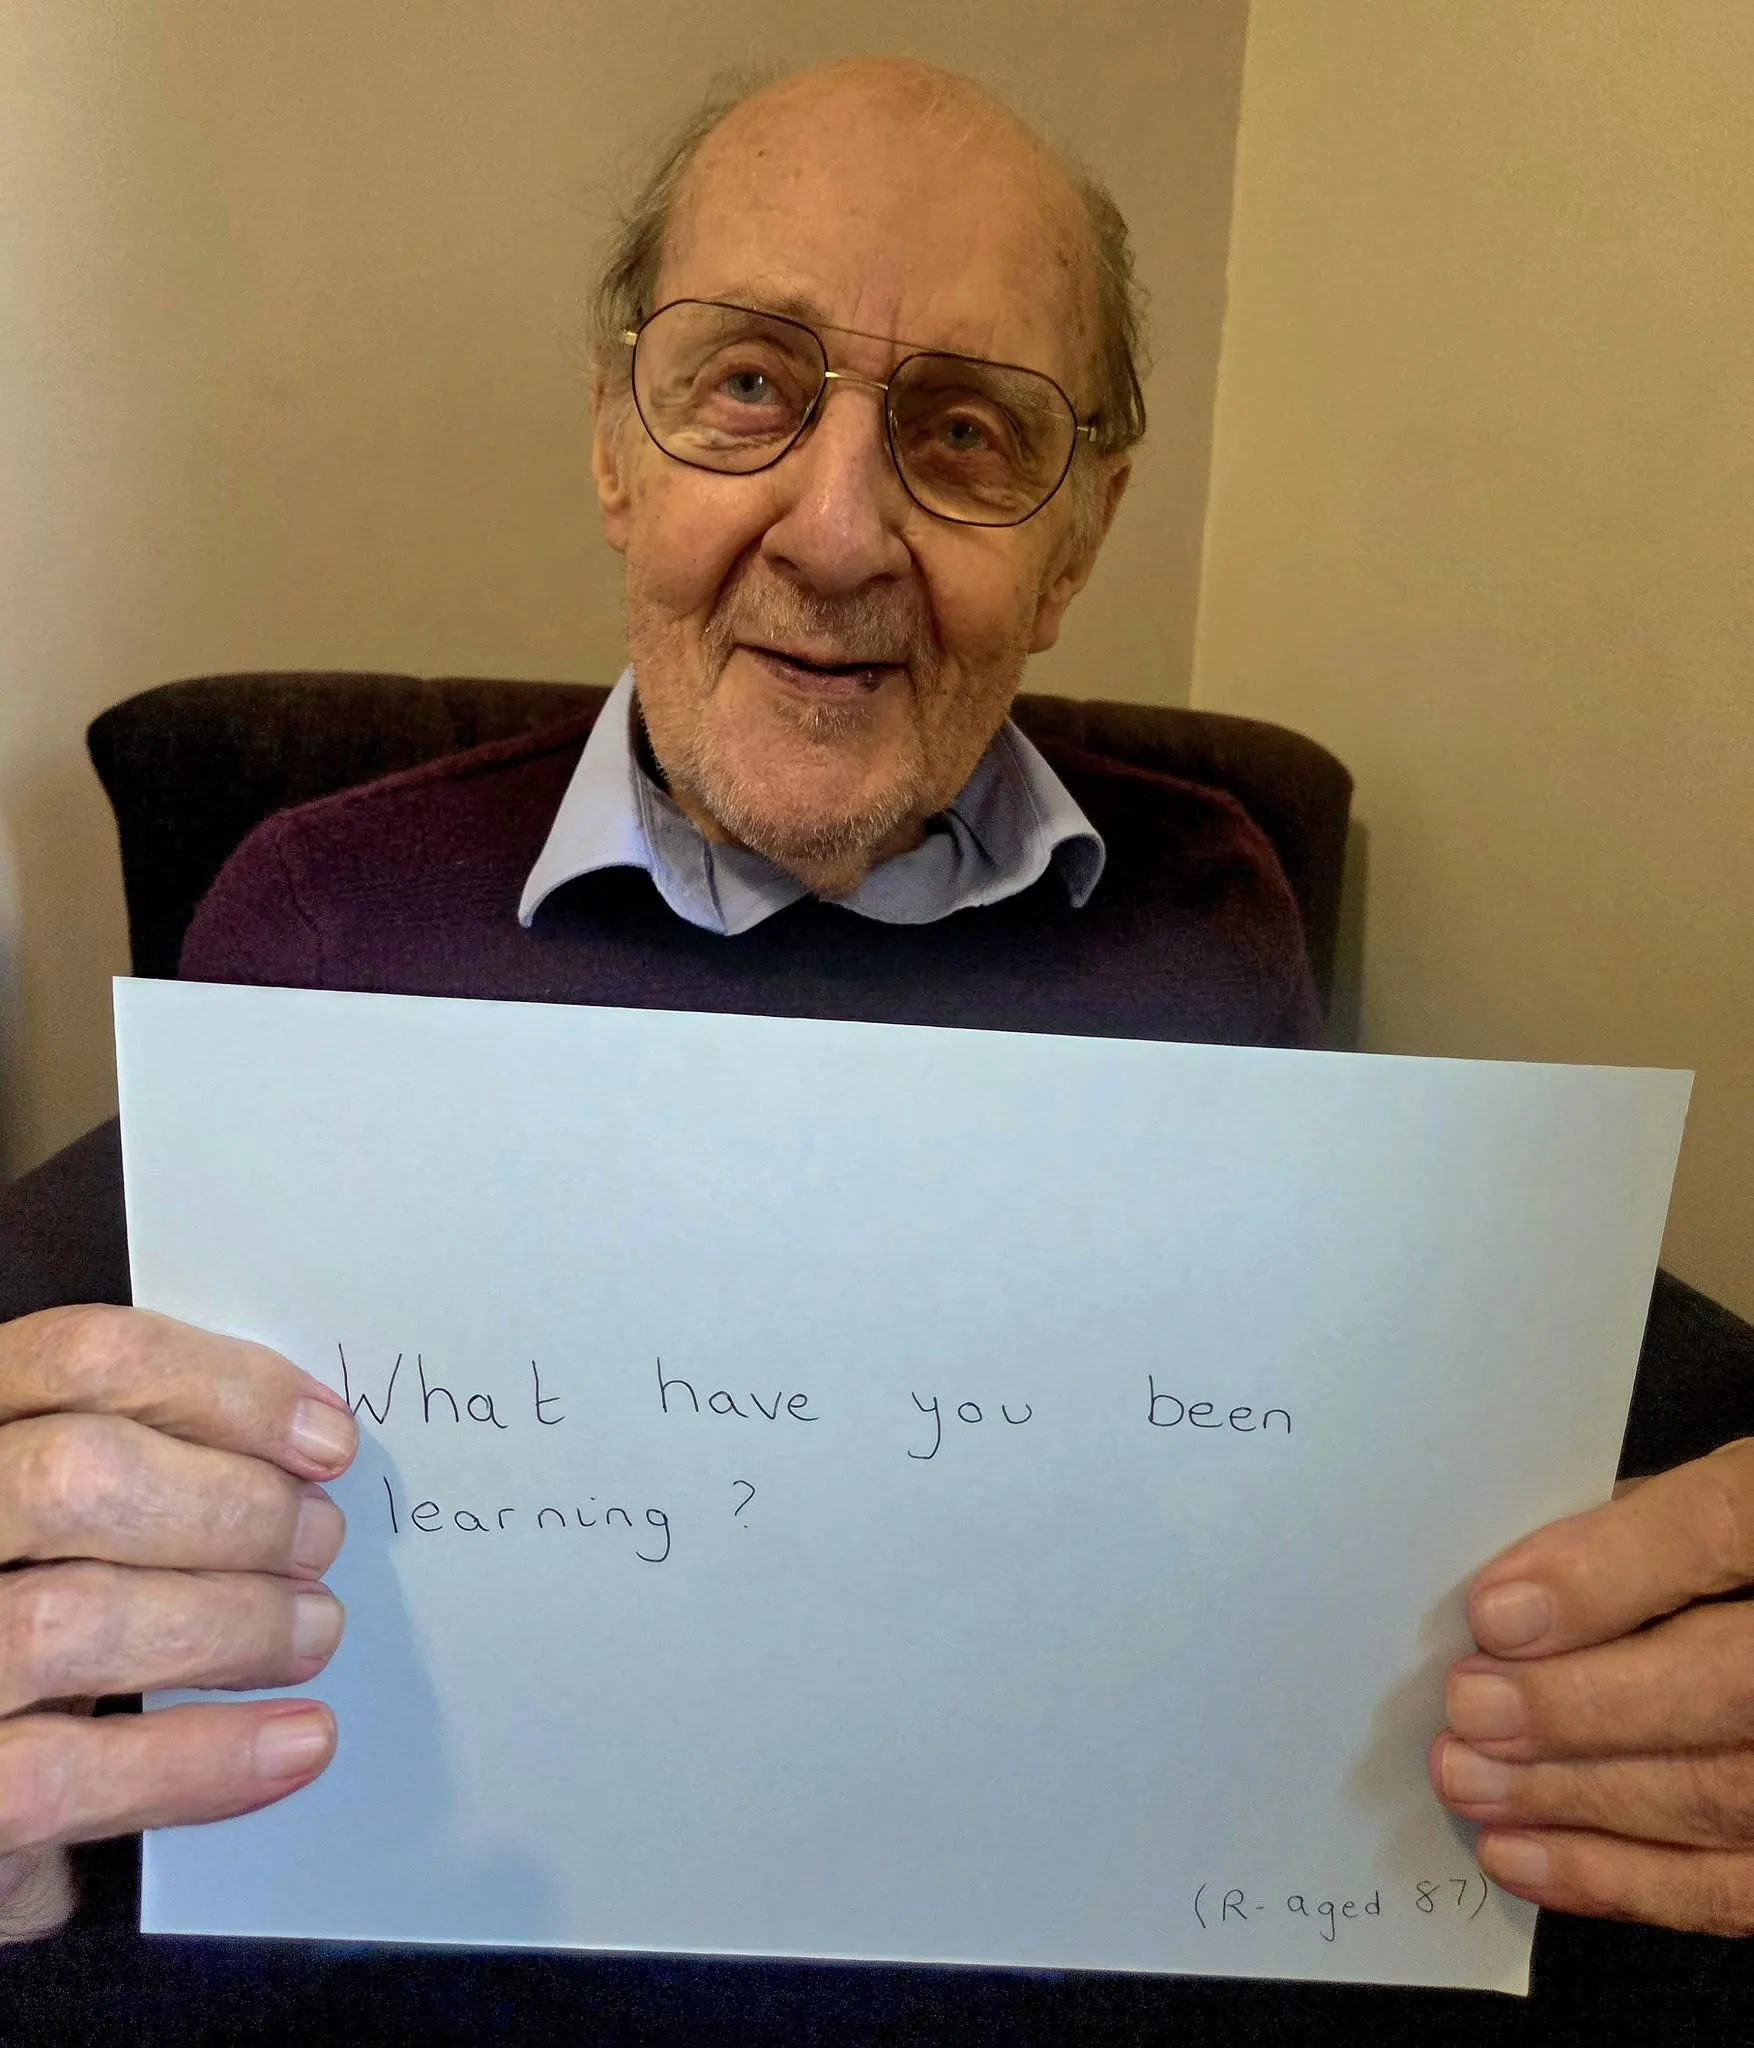 What have you been
learning?
(R- aged 87)